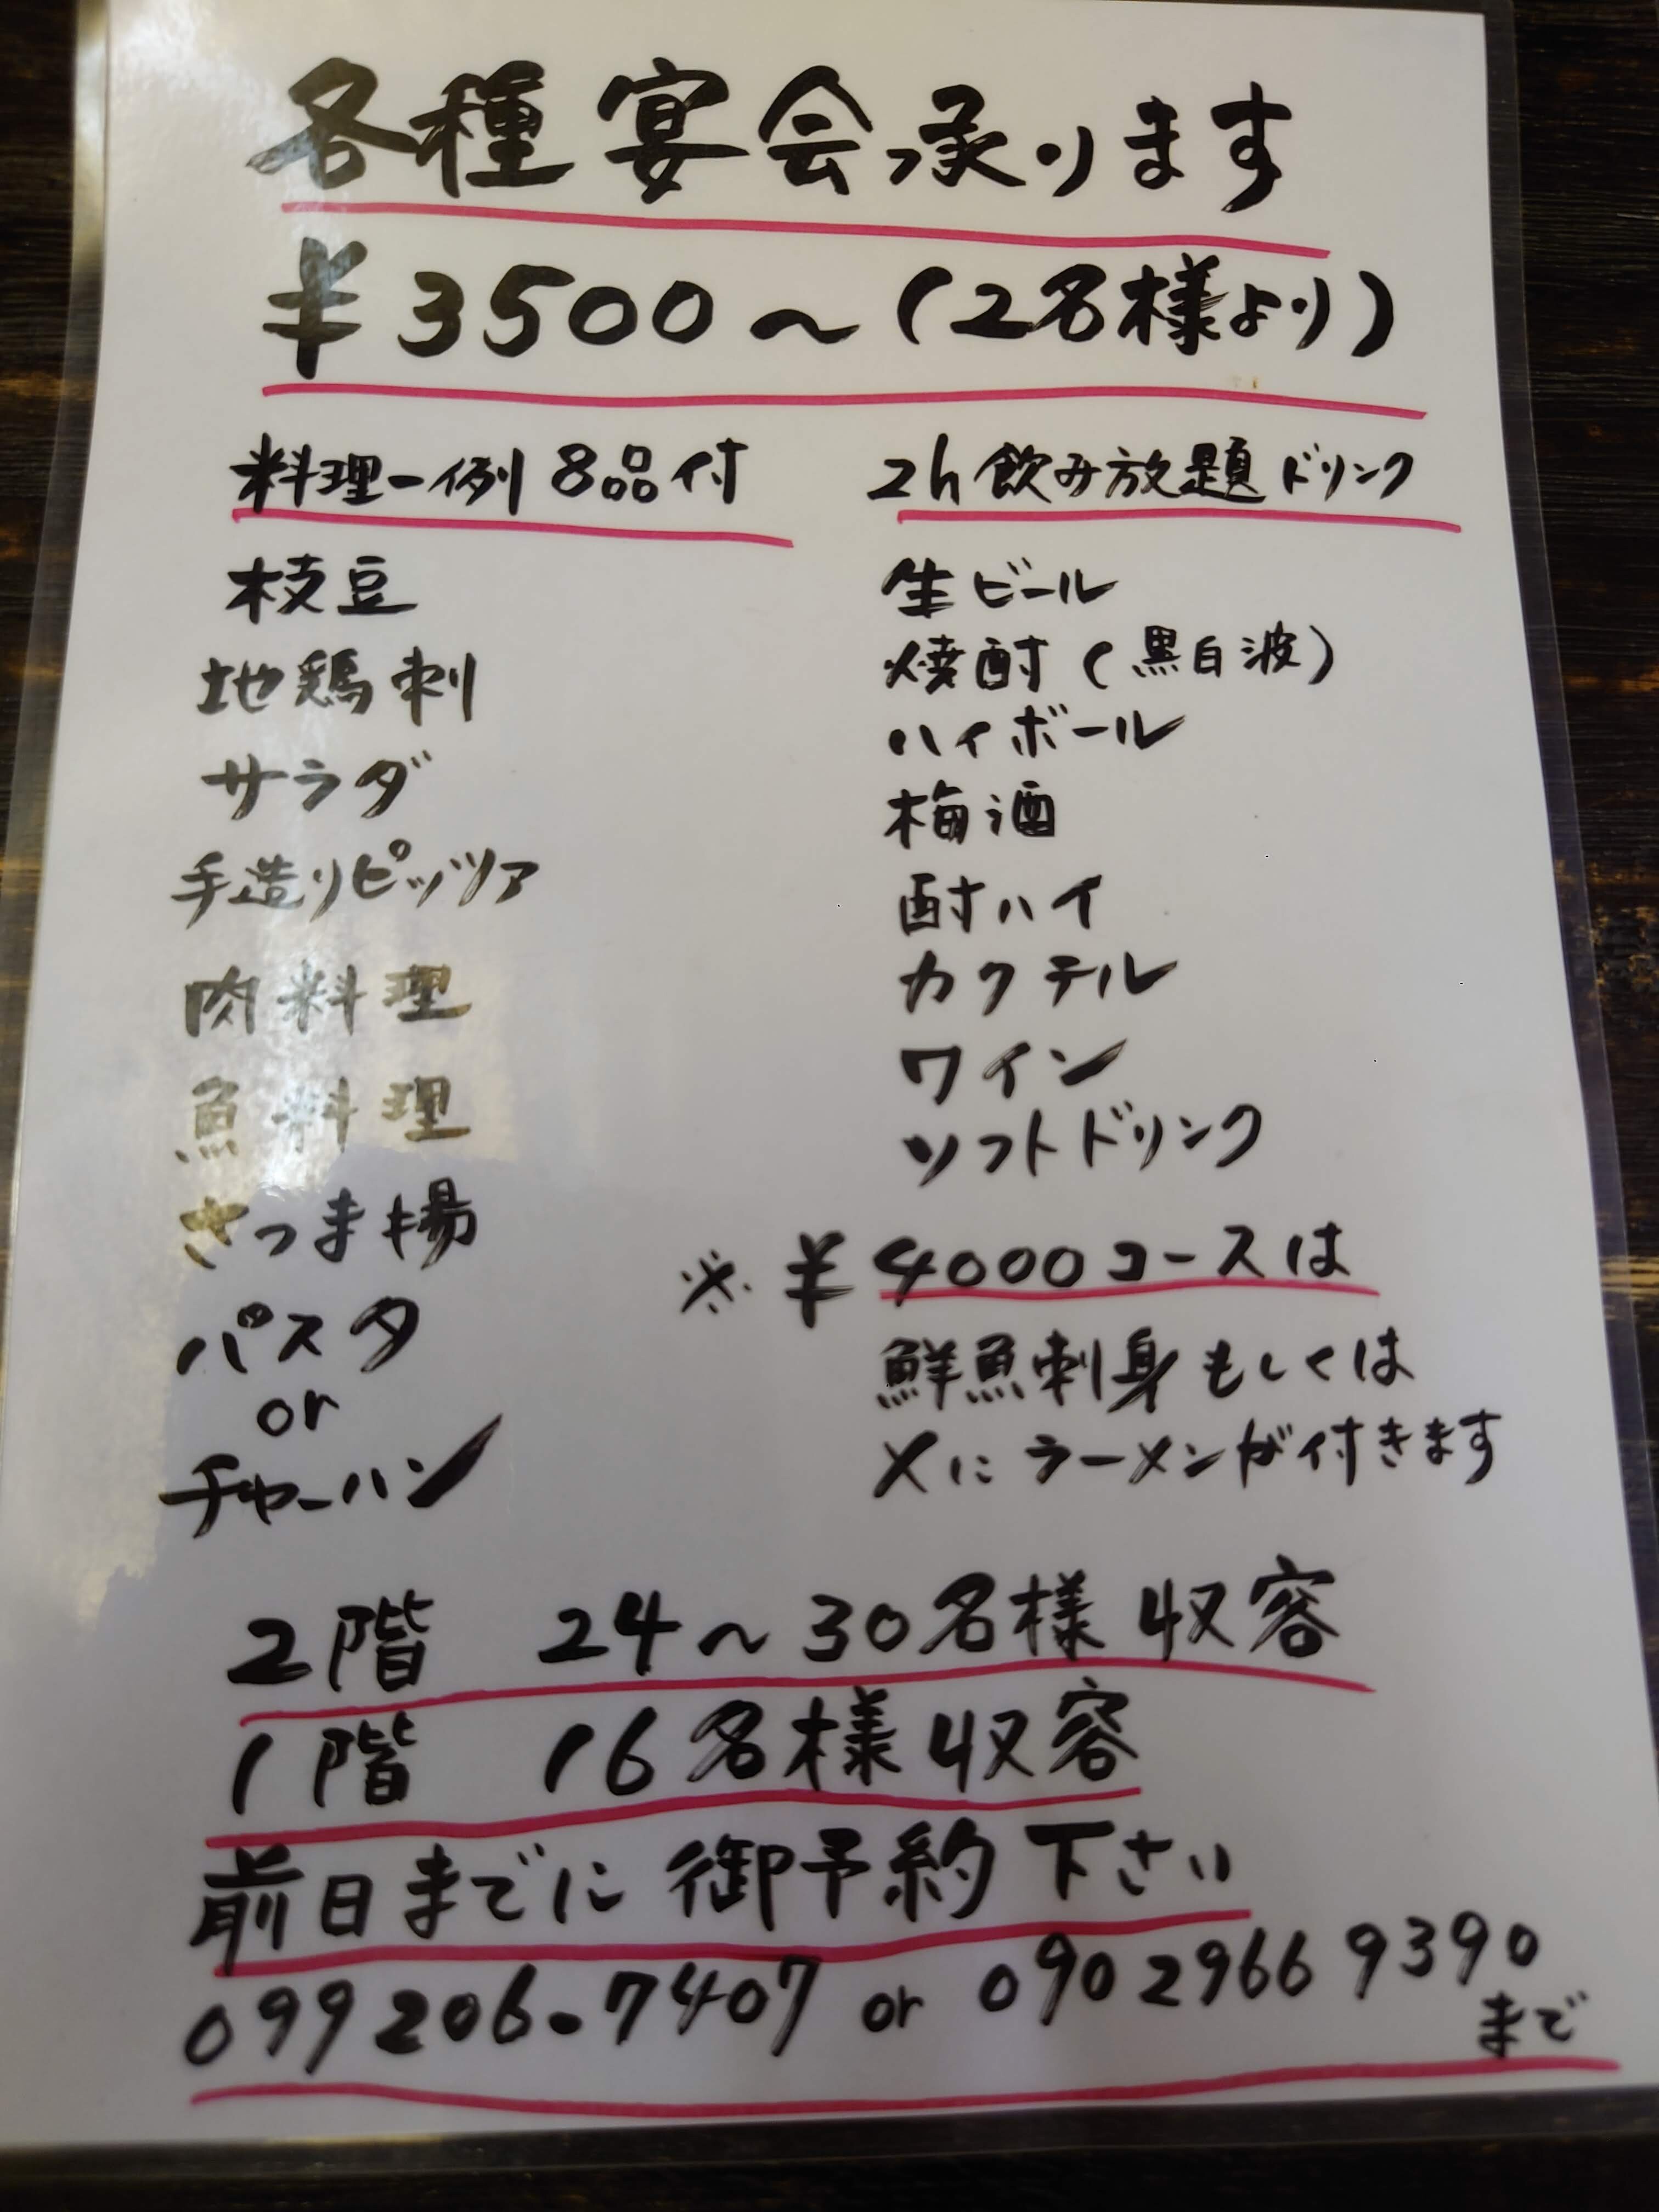 各種宴会承ります
¥3500〜(2名様より)
料理一例8品付
枝豆
地鶏刺
サラダ
手造りピッツァ
肉料理
魚料理
さつま揚
パスタ
or
チャーハン
2h飲み放題ドリンク
生ビール
焼酎(黒白波)
ハイボール
梅酒
酎ハイ
カクテル
ワイン
ソフトドリンク
※¥4000コースは
鮮魚刺身もしくは
〆にラーメンが付きます
2階 24〜30名様収容
1階 16名様収容
前日までに御予約下さい
099 206-7407 or 090 2966 9390
まで